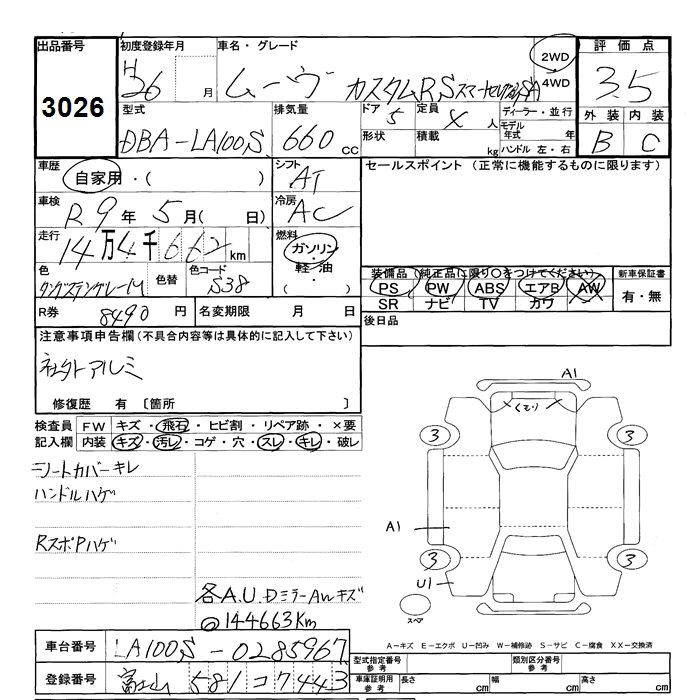 出品番号 初度登録年月 車名・グレード 2WD 評価点
3026 H26 月 ムーヴ カスタムRSスマートセレクションSA 4WD 3.5
型式 排気量 ドア 定員 ディーラー・並行 外装 内装
DBA-LA100S 660 cc 5 人 モデル年式 年 B C
形状 積載 kg ハンドル 左・右
車歴 シフト セールスポイント (正常に機能するものに限ります)
自家用・( ) AT
車検 冷房
R9年 5月( 日) AC
走行 燃料
14万4千662km ガソリン・
軽油
・( )
色 色替 色コード 装備品 (純正品に限り○をつけてください) 新車保証書
タングステングレーM S38 PS PW ABS エアB AW 有・無
SR ナビ TV カワ
R券 8490 円 名変期限 月 日 後日品
注意事項申告欄(不具合内容等は具体的に記入して下さい)
社外アルミ
修復歴 有 〔箇所 〕
検査員 FW キズ・飛石・ヒビ割・リペア跡・×要
記入欄 内装 キズ・汚レ・コゲ・穴・スレ・キレ・破レ
シートカバーキレ
ハンドルハゲ
RスポPハゲ
各A.U.DミラーAWキズ
@144663Km
A1
3 3
A1
3 3
U1
スペア
A-キズ E-エクボ U-凹み W-補修跡 S-サビ C-腐食 XX-交換済
車台番号 LA100S-0285967
型式指定番号 参考 類別区分番号 参考
登録番号 富士山 581 コ7443
車庫証明用 参考 長さ cm 幅 cm 高さ cm